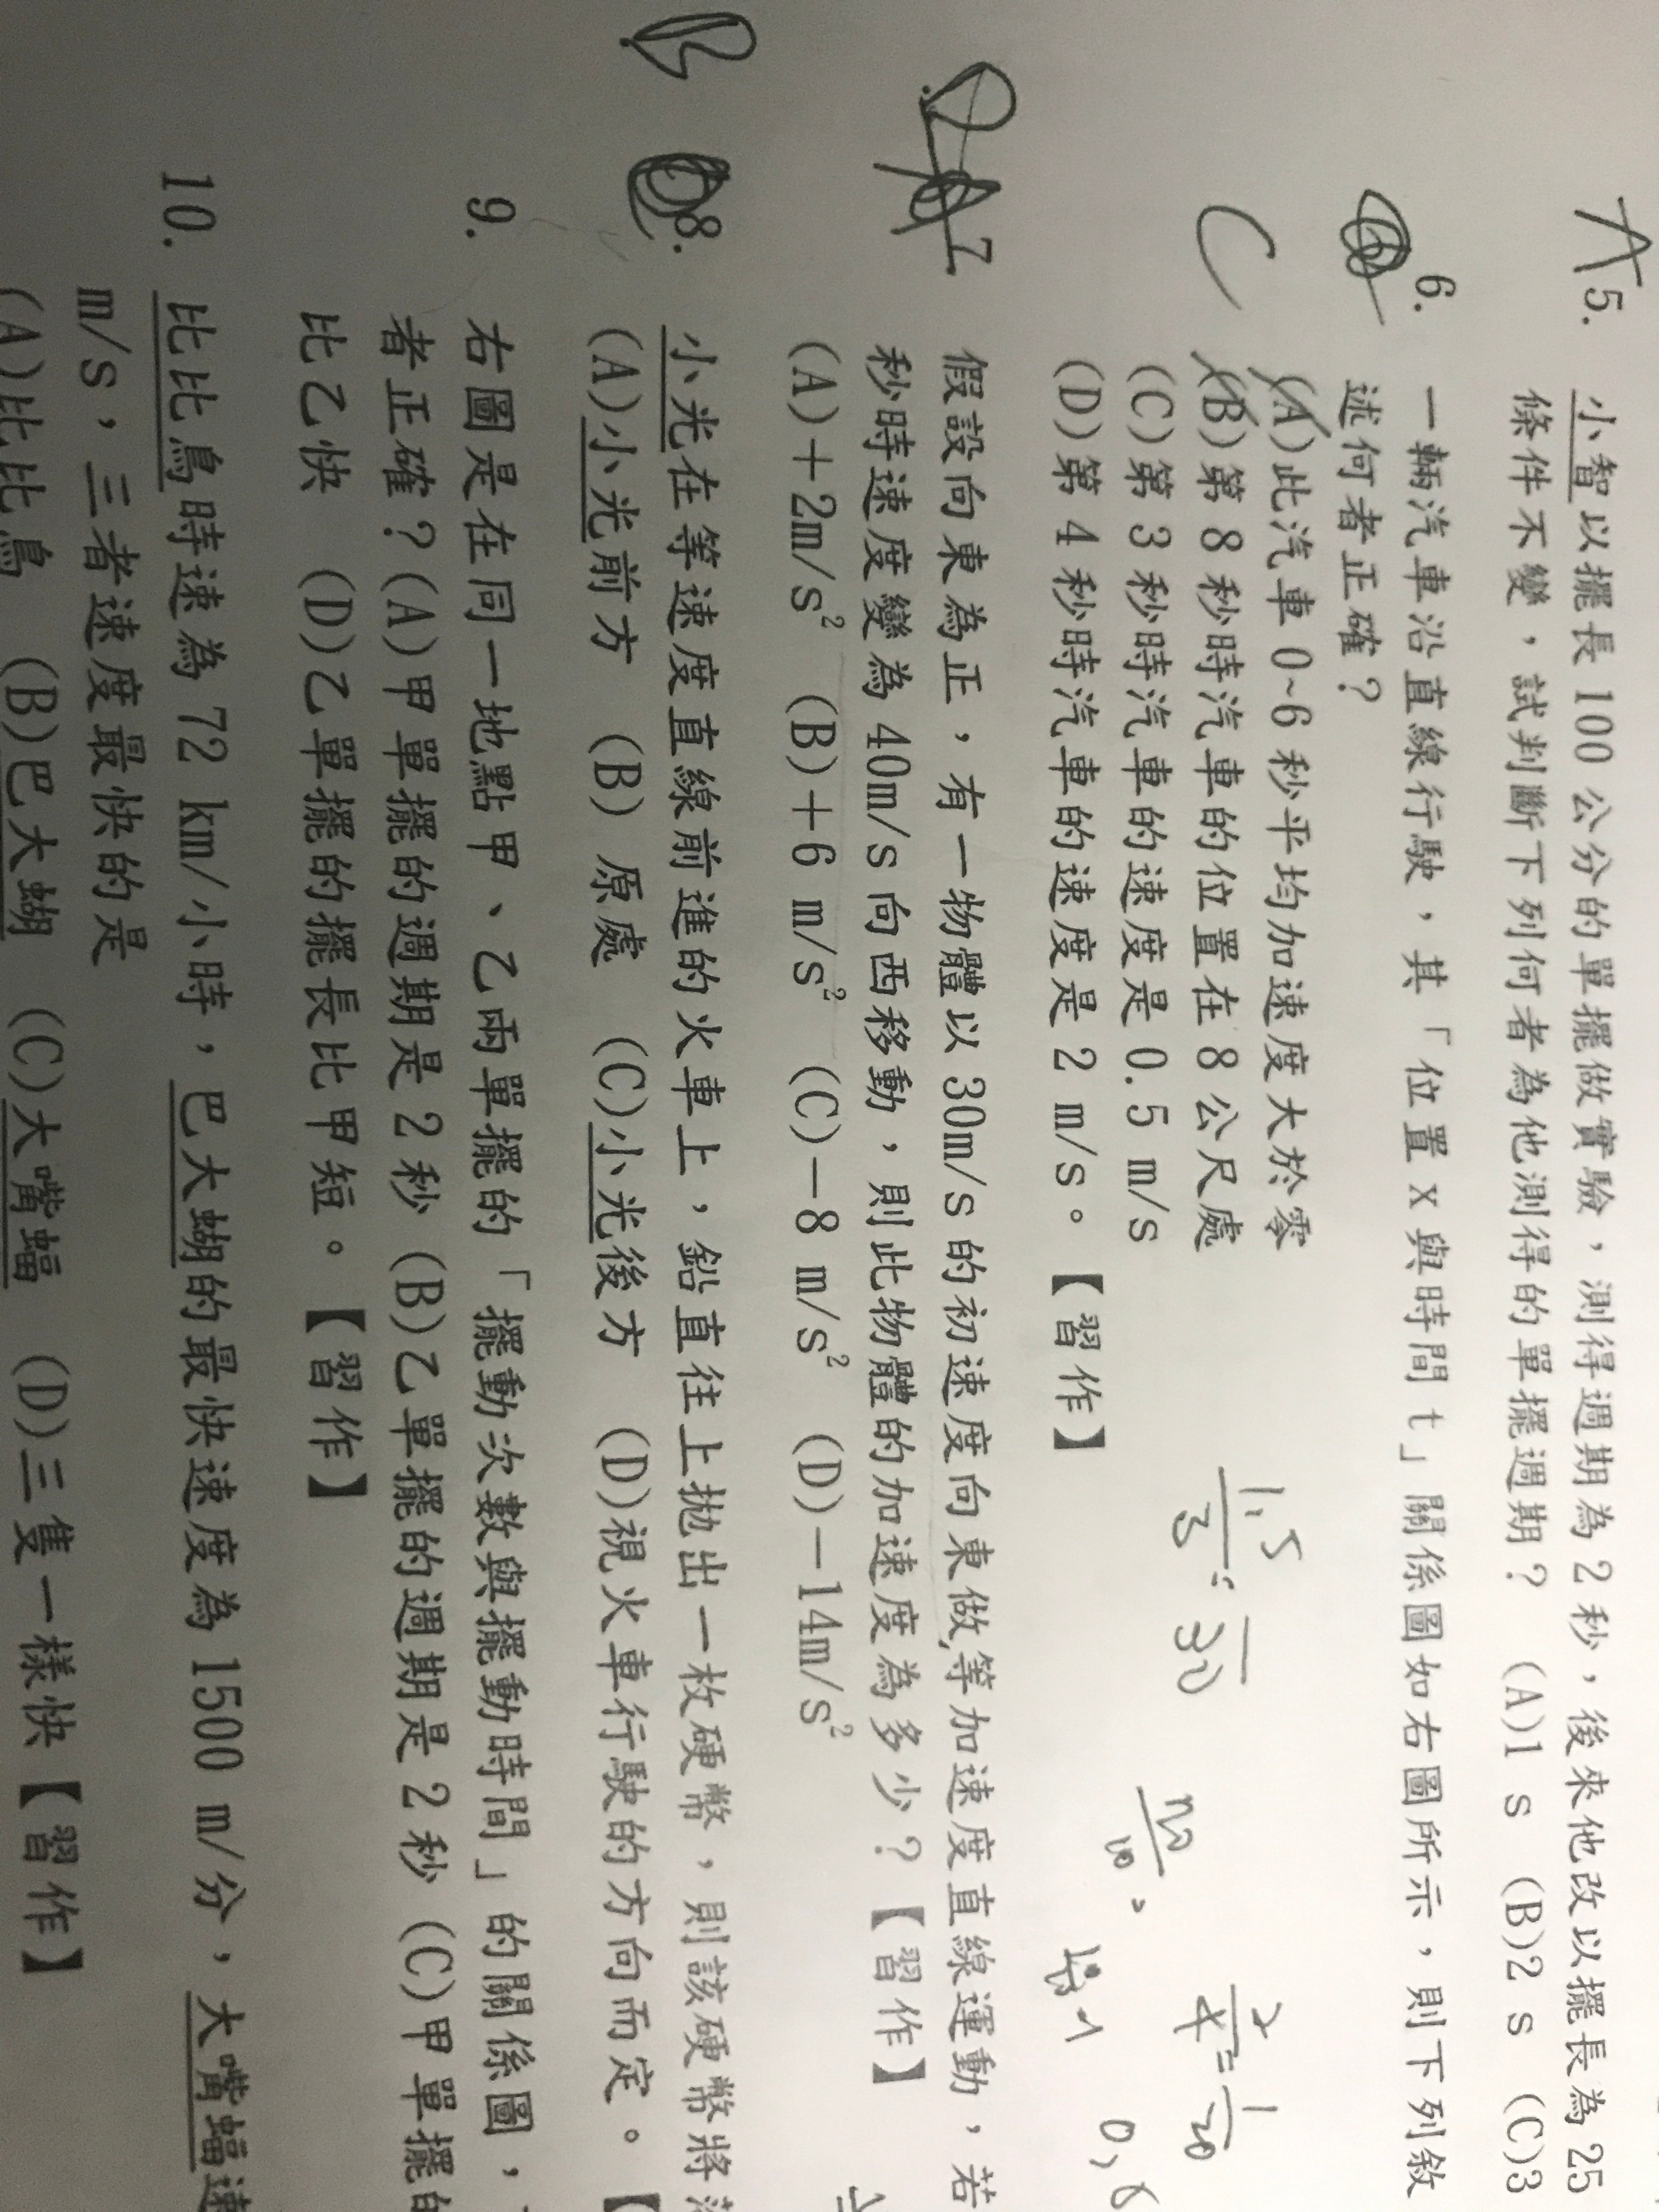 A 5. 小智以擺長 100 公分的單擺做實驗，測得週期為 2 秒，後來他改以擺長為 25
條件不變，試判斷下列何者為他測得的單擺週期？ (A)1 s (B)2 s (C)3
6. 一輛汽車沿直線行駛，其「位置 x 與時間 t」關係圖如右圖所示，則下列敘
述何者正確？
(A)此汽車 0~6 秒平均加速度大於零
C (B)第 8 秒時汽車的位置在 8 公尺處
(C)第 3 秒時汽車的速度是 0.5 m/s
(D)第 4 秒時汽車的速度是 2 m/s。【習作】
1.5
3
30
2
4 = 1
20
n
10
7. 假設向東為正，有一物體以 30m/s 的初速度向東做等加速度直線運動，若
秒時速度變為 40m/s 向西移動，則此物體的加速度為多少？【習作】
(A)＋2m/s² (B)＋6 m/s² (C)－8 m/s² (D)－14m/s²
B 8. 小光在等速度直線前進的火車上，鉛直往上拋出一枚硬幣，則該硬幣將落
(A)小光前方 (B) 原處 (C)小光後方 (D)視火車行駛的方向而定。【
9. 右圖是在同一地點甲、乙兩單擺的「擺動次數與擺動時間」的關係圖，
者正確？(A)甲單擺的週期是 2 秒 (B)乙單擺的週期是 2 秒 (C)甲單擺的
比乙快 (D)乙單擺的擺長比甲短。【習作】
10. 比比鳥時速為 72 km/小時，巴大蝴的最快速度為 1500 m/分，大嘴蝠速
m/s，三者速度最快的是
(A)比比鳥 (B)巴大蝴 (C)大嘴蝠 (D)三隻一樣快【習作】